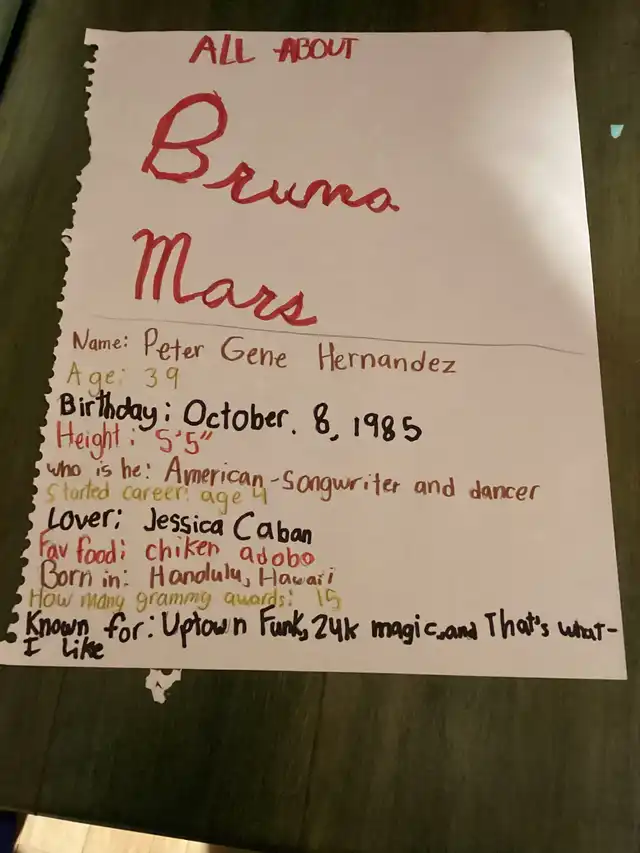 ALL ABOUT
Bruno
Mars
Name: Peter Gene Hernandez
Age: 39
Birthday: October. 8, 1985
Height: 5'5"
who is he: American-Songwriter and dancer
Started career: age 4
Lover: Jessica Caban
Fav food: chiken adobo
Born in: Hanolulu, Hawaii
How many grammy awards: 15
Known for: Uptown Funk, 24k magic, and That's what-
I like